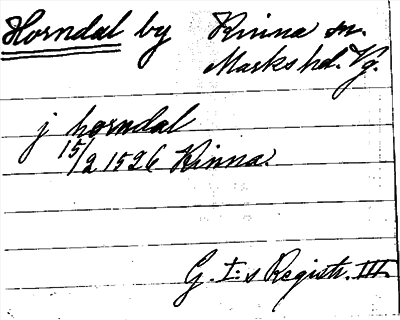 Horndal by Kinna sn.
Marks hd. Vg.
j horndal
15/2 1526 Kinna.
G. I:s Registr. III.